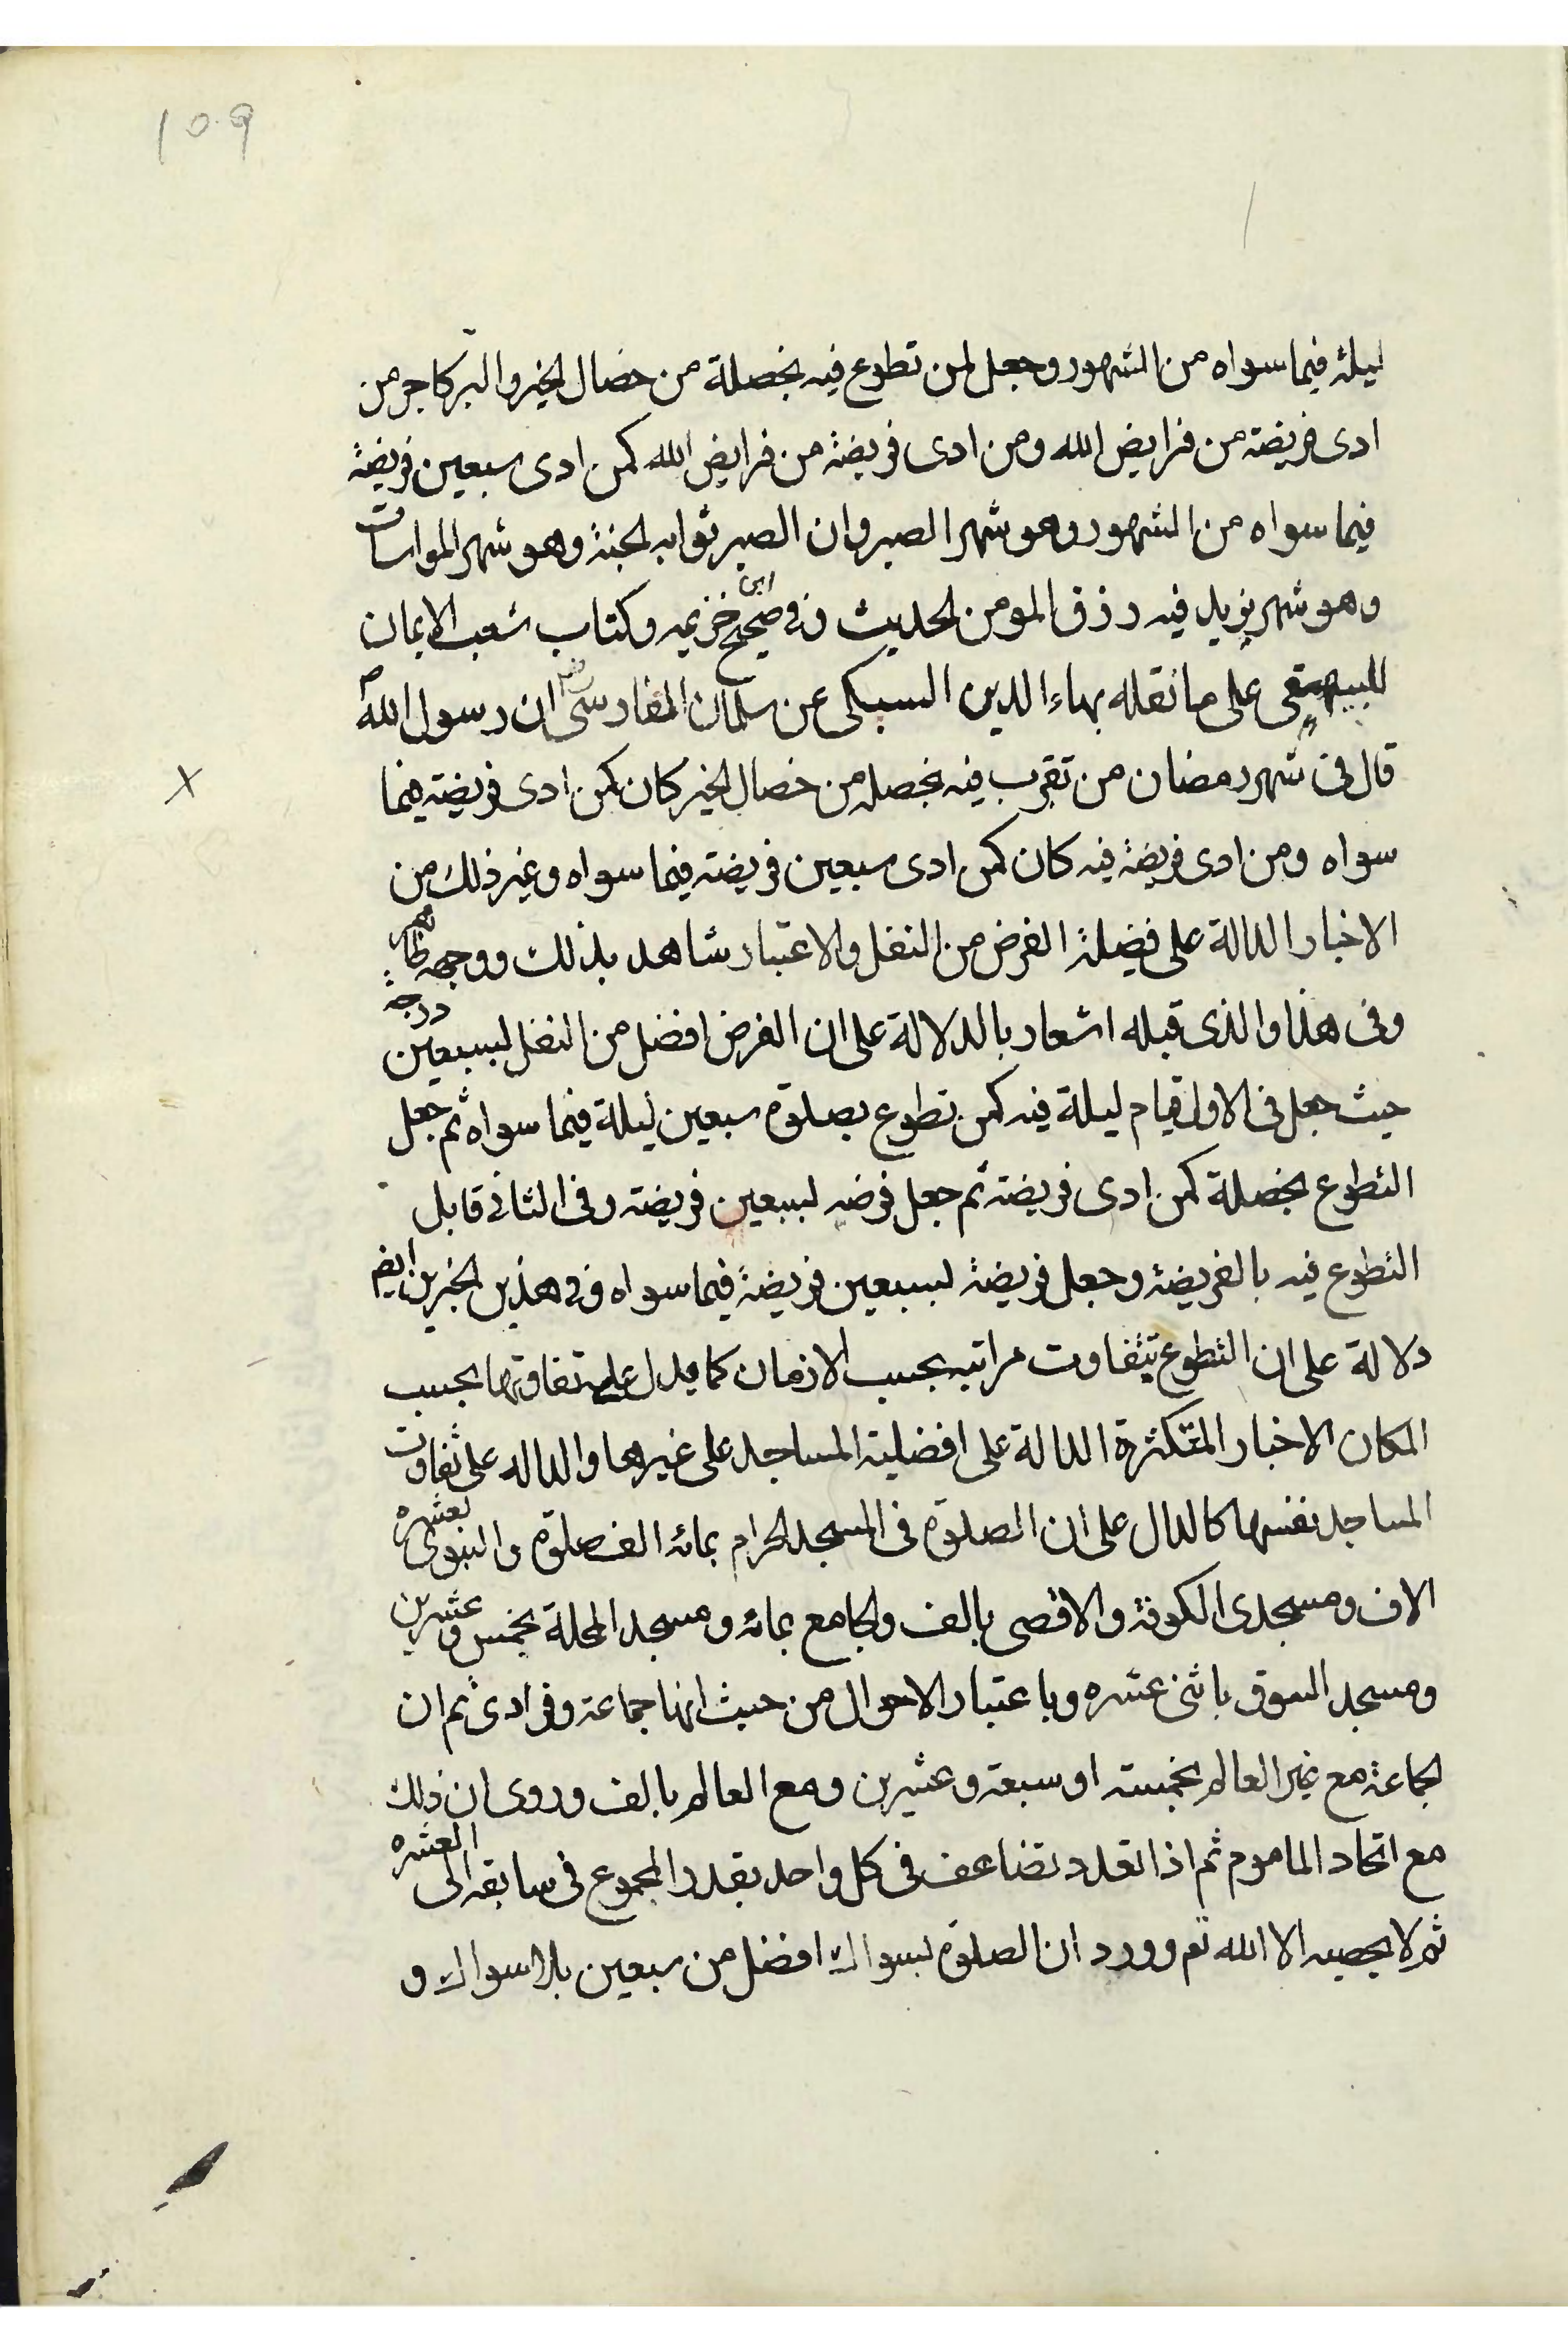 109
ليلة فيما سواه من الشهور وجعل لمن تطوع فيه بخصلة من خصال الخير والبر كاجر من
ادى فريضة من فرايض الله ومن ادى فريضة من فرايض الله كمن ادى سبعين فريضة
فيما سواه من الشهور وهو شهر الصبر وان الصبر ثوابه الجنة وهو شهر المواسات
وهو شهر يزيد فيه رزق المومن الحديث وفى صحيح ابن خزيمه وكتاب شعب الايمان
للبيهقى على ما نقله بهاء الدين السبكى عن سلمان الفارسى ان رسول الله ص
قال فى شهر رمضان من تقرب فيه بخصلة من خصال الخير كان كمن ادى فريضة فيما
سواه ومن ادى فريضة فيه كان كمن ادى سبعين فريضة فيما سواه وغير ذلك من
الاخبار الدالة على فضيلة الفرض من النفل والاعتبار شاهد بذلك ووجهه ظاهر
وفى هذا والذى قبله اشعار بالدلالة على ان الفرض افضل من النفل لسبعين درجه
حيث جعل فى الاول قيام ليلة فيه كمن تطوع بصلوة سبعين ليلة فيما سواه ثم جعل
التطوع بخصلة كمن ادى فريضة ثم جعل فرضه لسبعين فريضة وفى الثانى قابل
التطوع فيه بالفريضة وجعل فريضة لسبعين فريضة فيما سواه وفى هذين الخبرين ايضا
دلالة على ان التطوع يتفاوت مراتبه بحسب الازمان كما يدل على تفاوتها بحسب
المكان الاخبار المتكثرة الدالة على افضلية المساجد على غيرها والداله على تفاوت
المساجد نفسها كالدال على ان الصلوة فى المسجد الحرام بمائة الف صلوة والنبوى بعشره
الاف ومسجدى الكوفة والاقصى بالف والجامع بمائة ومسجد المحلة بخمس وعشرين
ومسجد السوق باثنى عشره وباعتبار الاحوال من حيث انها جماعة وفرادى ثم ان
الجماعة مع غير العالم بخمسة او سبعة وعشرين ومع العالم بالف وروى ان ذلك
مع اتحاد الماموم ثم اذا تعدد تضاعف فى كل واحد بقدر المجموع فى سابقه الى العشره
ثم لا يحصيه الا الله تع وورد ان الصلوة بسواك افضل من سبعين بلا سواك و